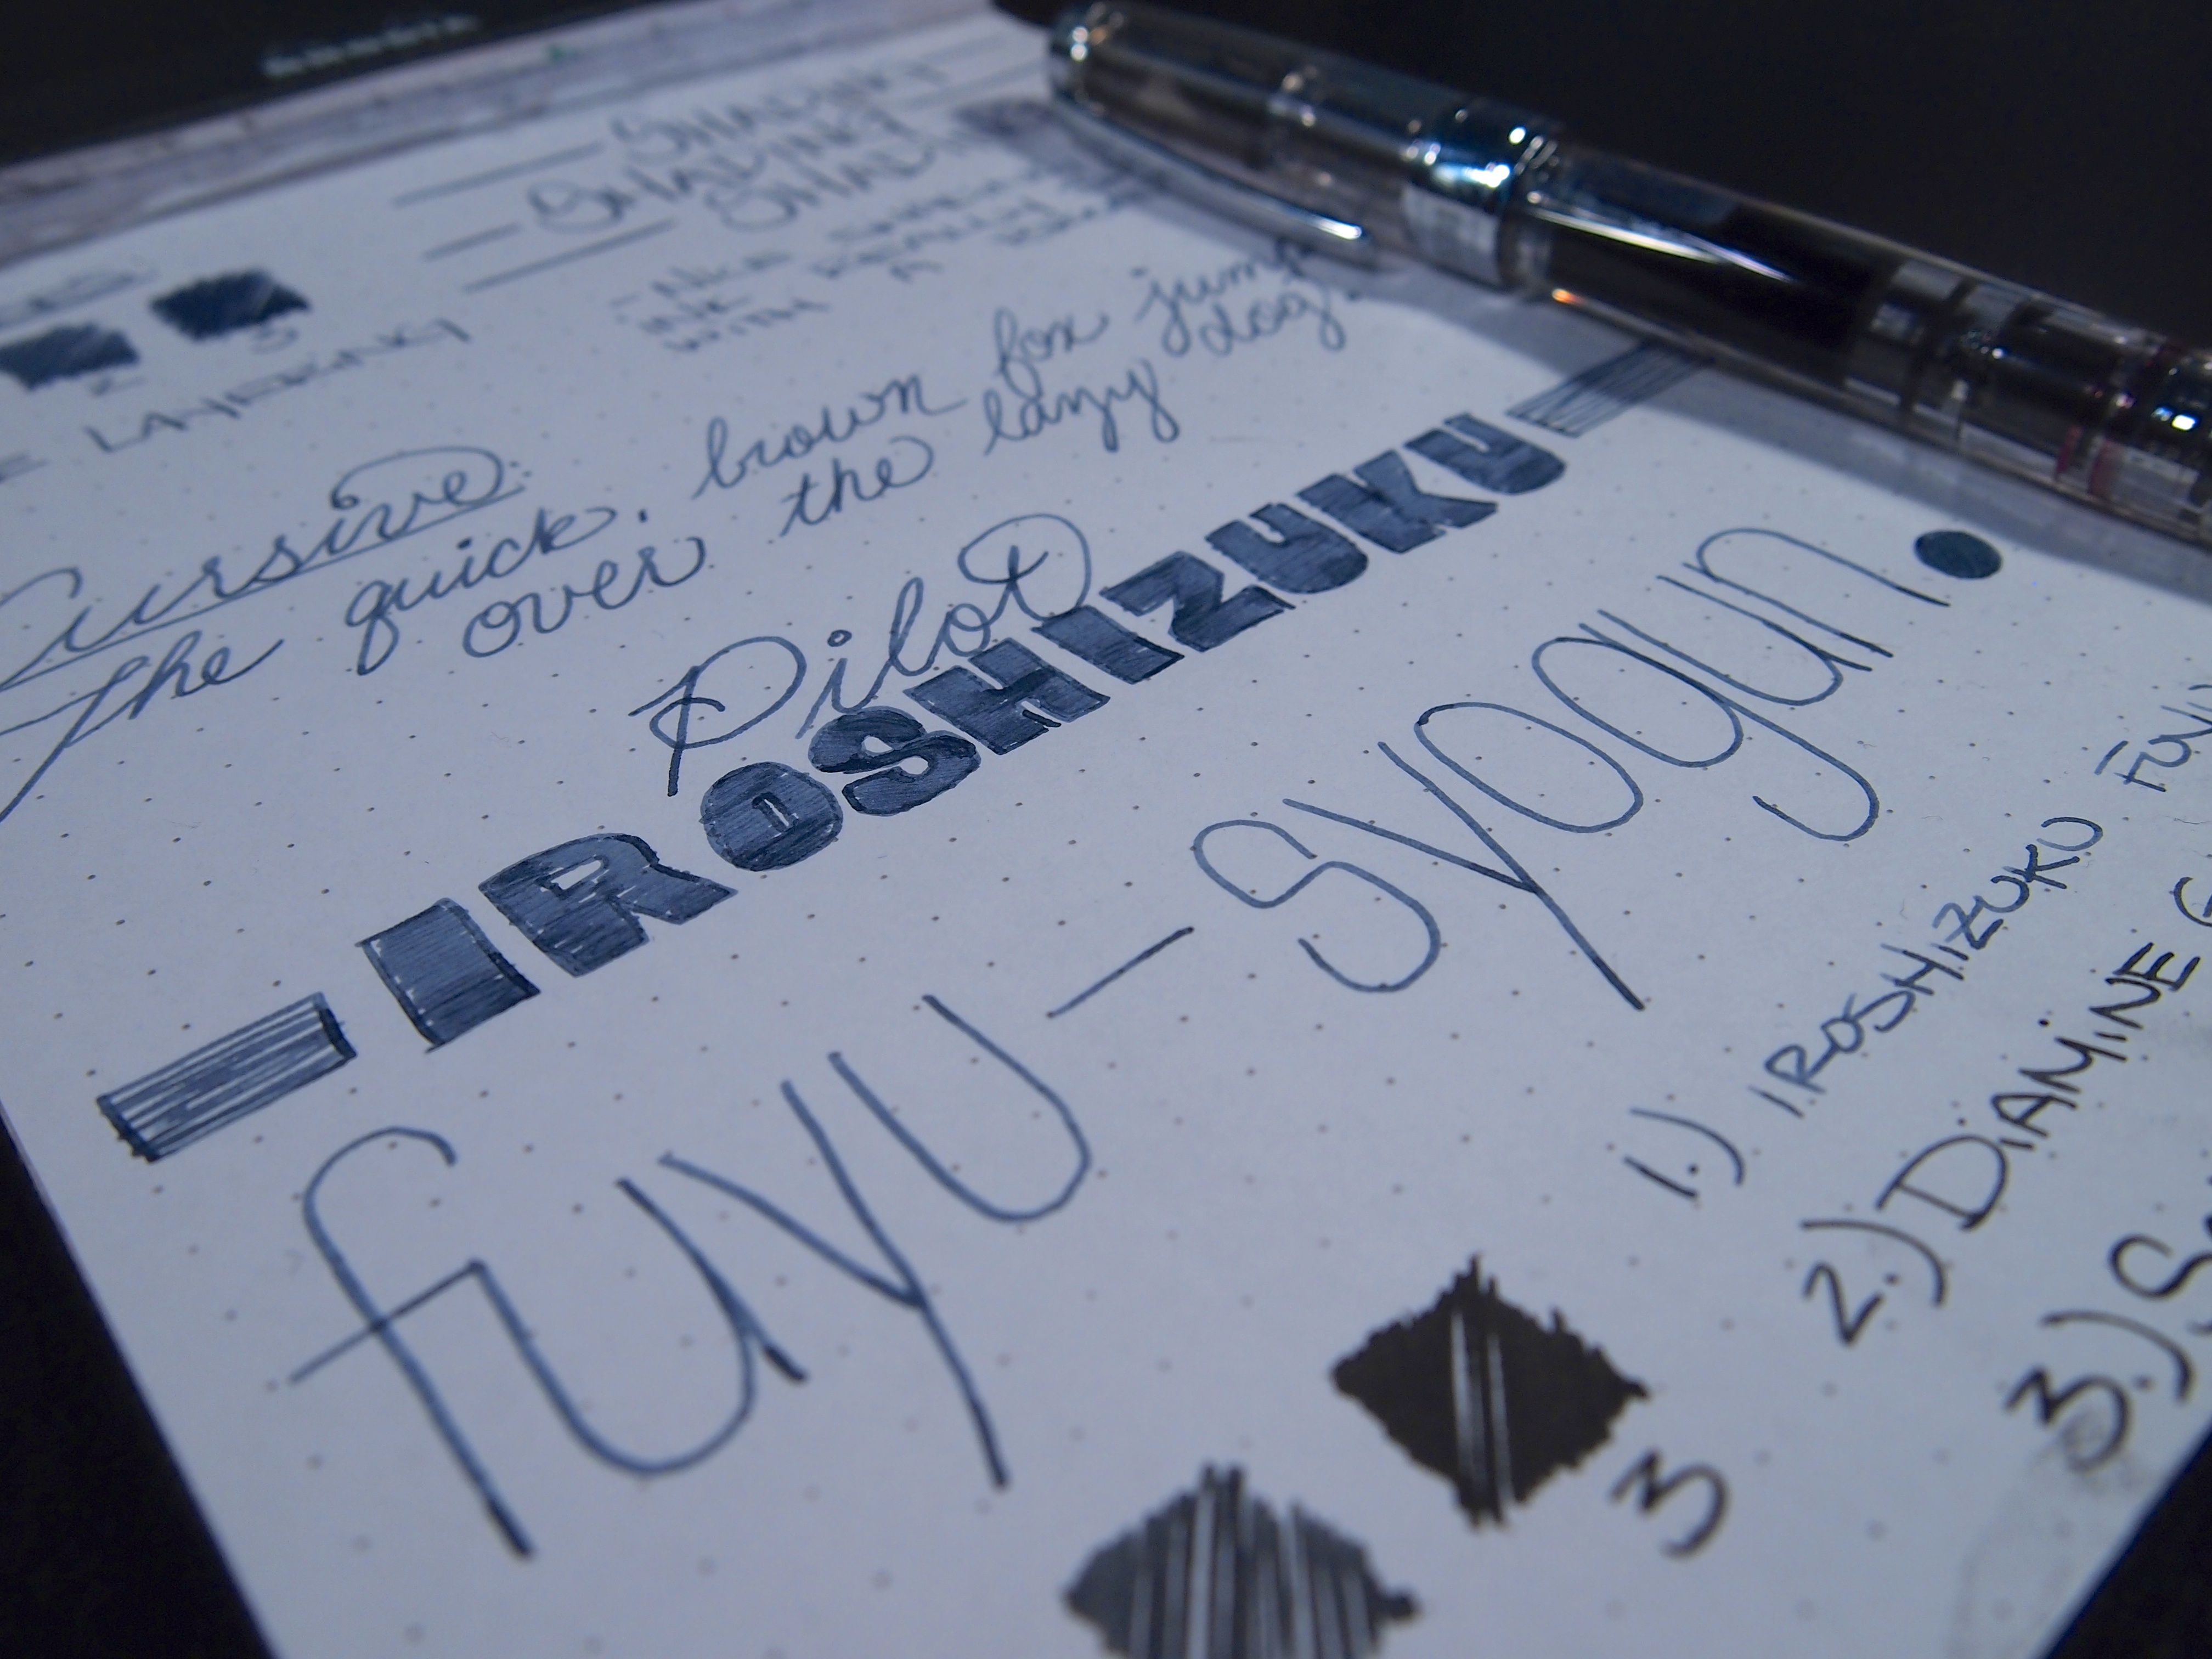 SHADING
SHADING
- NICE
INK REALLY
WITH A
2 3
LAYERING
Cursive:
The quick brown fox jump
over the lazy dog.
Pilot
IROSHIZUKU
fuyu-syogun
1.) IROSHIZUKU FUYU
2.) DIAMINE G
3.) S
3